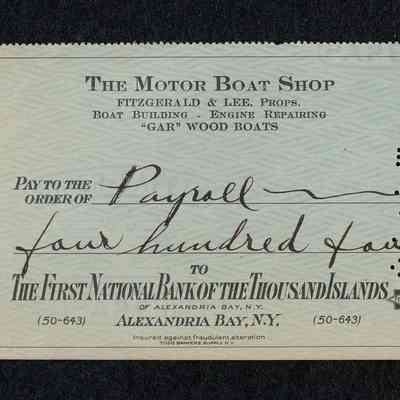 THE MOTOR BOAT SHOP
FITZGERALD & LEE, PROPS.
BOAT BUILDING - ENGINE REPAIRING
"GAR" WOOD BOATS
PAY TO THE
ORDER OF Payroll
four hundred
TO
THE FIRST NATIONAL BANK OF THE THOUSAND ISLANDS
OF ALEXANDRIA BAY, N.Y.
(50-643) ALEXANDRIA BAY, N.Y. (50-643)
Insured against fraudulent alteration
TODD BANKERS SUPPLY N.Y.